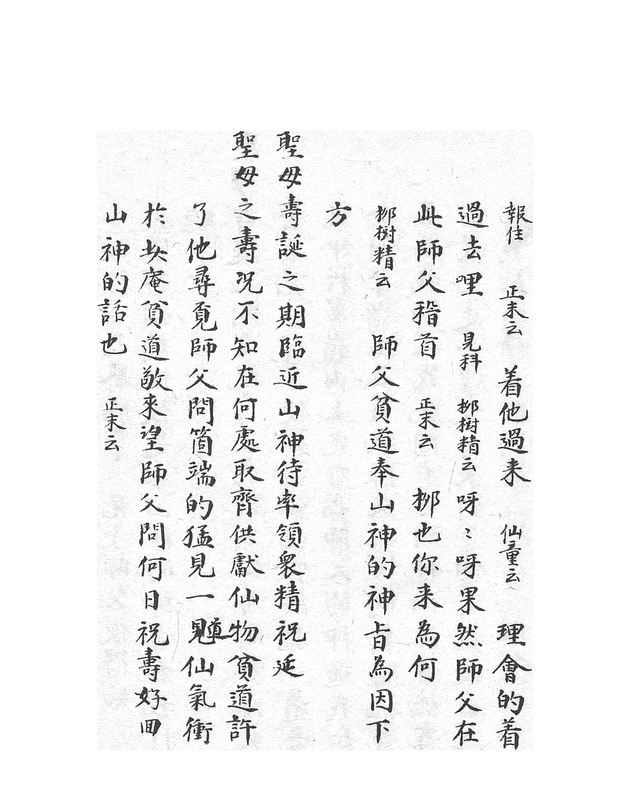 報住 正末云 着他過来 仙童云 理會的着
過去哩 見科 柳樹精云 呀〻呀果然師父在
此師父稽首 正末云 柳也你来為何
柳樹精云 師父貧道奉山神的神旨為因下
方
聖母壽誕之期臨近山神待率領衆精祝延
聖母之壽况不知在何處取齊供獻仙物貧道許
了他尋覓師父問箇端的猛見一道仙氣衝
於此庵貧道敬来望師父問何日祝壽好回
山神的話也 正末云